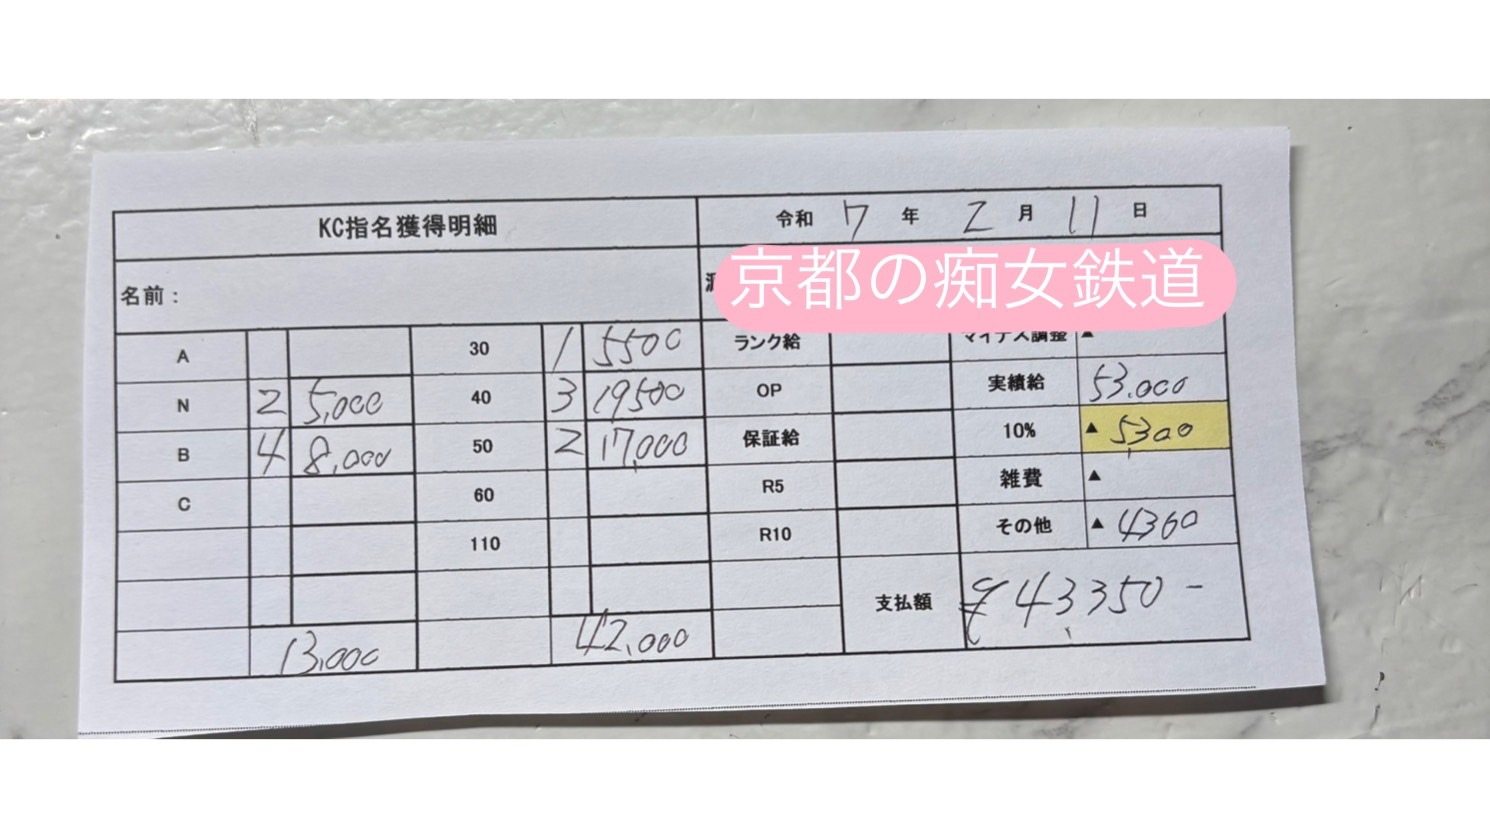 KC指名獲得明細 令和 7 年 2 月 11 日
名前：
京都の痴女鉄道
A 30 1 5500 ランク給 マイナス調整 ▲
N 2 5,000 40 3 19500 OP 実績給 53.000
B 4 8,000 50 2 17,000 保証給 10% ▲ 5300
C 60 R5 雑費 ▲
110 R10 その他 ▲ 4360
支払額 ¥43,350-
13,000 42,000